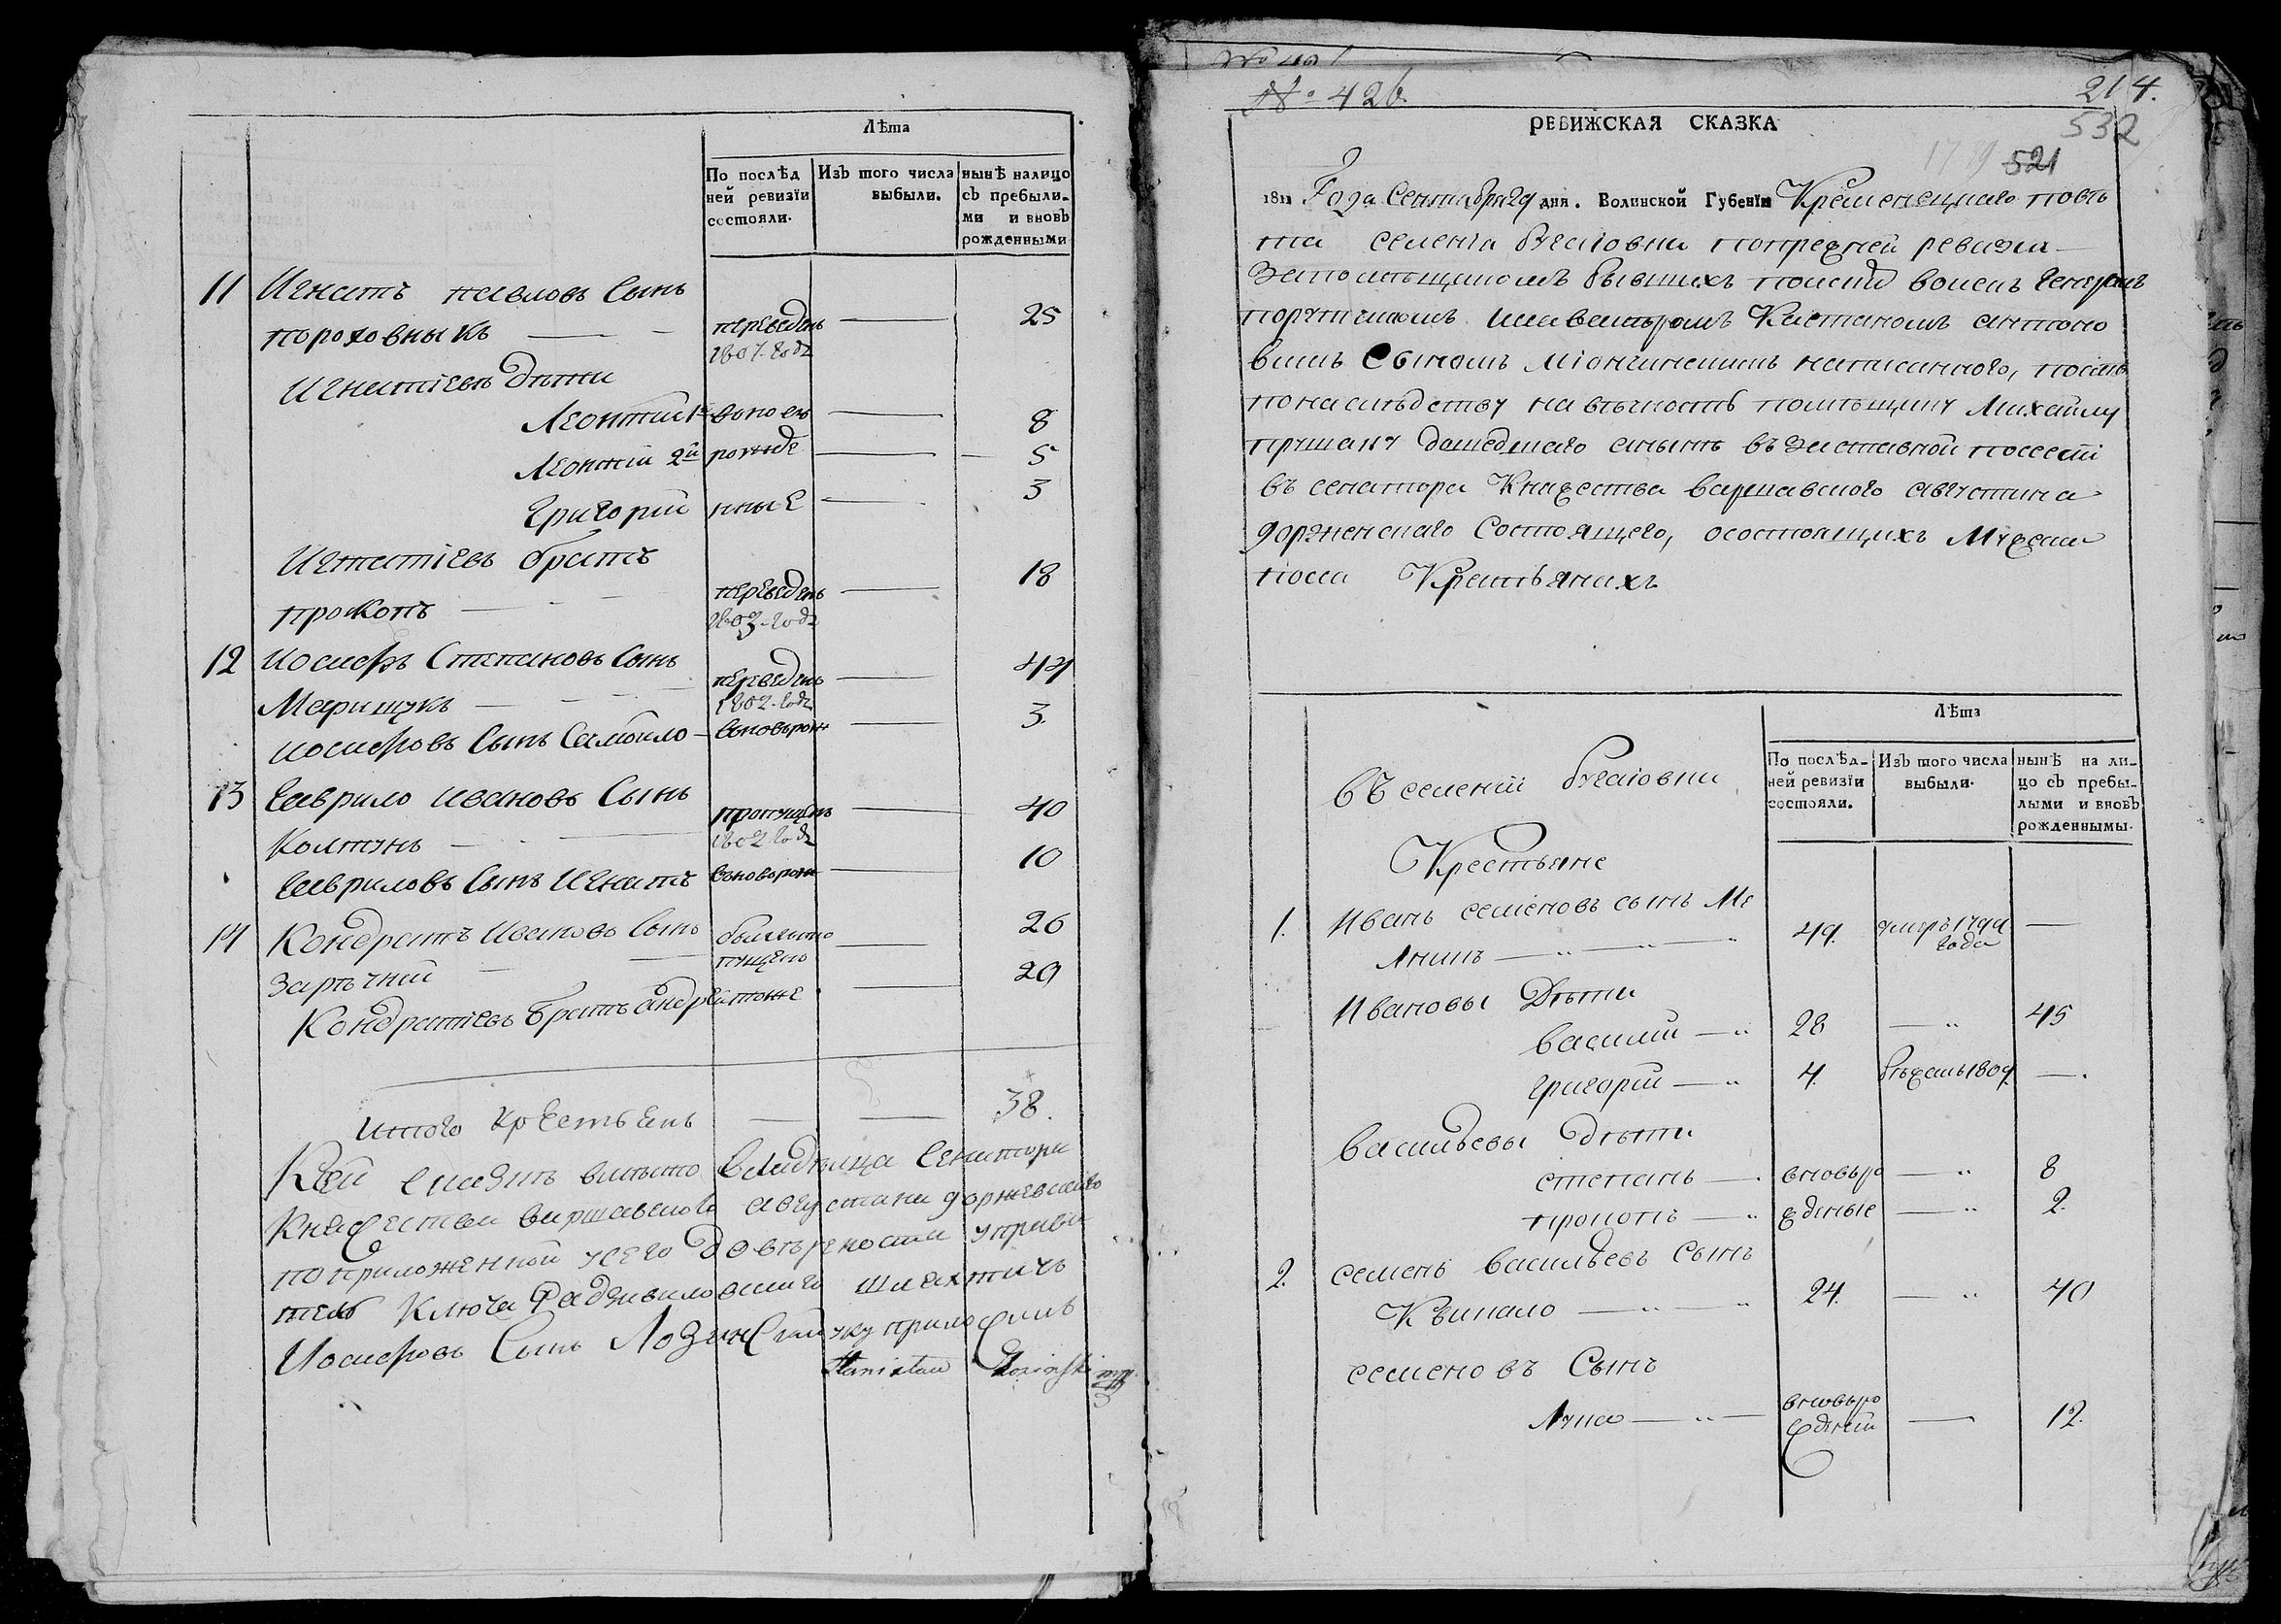 Лѣта
По послѣд
ней ревизїи
состояли.
Изъ того числа
выбыли.
нынѣ налицо
съ пребыли-
ми и вновъ
рожденными
11 Игнатъ павловъ Сынъ
пороховныкъ — переведенъ — 25
1807 годѣ
Игнатіевы дѣти
Леонтий 1й вново — 8
Леонтій 2й рожде — 5
Григорій нные — 3
Игнатіевъ братъ
прокопъ — переведенъ — 18
1803 годѣ
12 Иосифъ Степановъ Сынъ
Марищукъ — переведенъ — 44
1802 годѣ
иосифовъ Сынъ Самоило — вновьрож — 3.
13 Гаврило Ивановъ Сынъ
Колтунъ — пропущенъ — 40
1802 годѣ
Гавриловъ Сынъ Игнатъ вьноворож — 10
14 Кондратъ Ивановъ Сынъ — 26
Зарѣчний пущенъ
Кондратіевъ братъ андрей тоже — 29
итого крестьянъ — — 38.
Къ сей сказкѣ вмѣсто владѣльца Сенатора
Княжества варшавского августина
поприложенной усего довѣрености управи
тель Ключа Радзивиловского шляхтичъ
Иосифовъ Сынъ Лозинскій руку приложилъ
Stanisław Łozinski mp
№ 426.
214.
532
521
РЕВИЖСКАЯ СКАЗКА
1811 Года Сентября 29 дня. Волинской Губенїи Кременецкаго повѣ
та селенія попрежней ревизіи
Запомѣщикомъ бывшихъ польскихъ воискъ Генералъ
поручикомъ Каетаномъ антоно
вимъ Сыномъ написанного, послѣ
понаслѣдству навѣчность помѣщику Михайлу
дошедшаго анынѣ въ заставной посессіи
въ сенатора Княжества варшавского августина
состоящего, осостоящихъ Мужеска
пола Крестьянихъ
Лѣта
По послѣд-
ней ревизїи
состояли.
Изъ того числа
выбыли.
нынѣ на ли-
цо съ пребы-
лыми и вновъ
рожденнымы.
Въ селеніи
Крестьяне
1. Иванъ семеновъ сынъ Ме
лникъ — 49. умеръ 1799 —
года
Ивановы Дѣти
василий — 28 — 45
григорій — 4. бѣжалъ 1809. —
васильевы дѣти
степанъ — вновьро — 8
прокопъ — жденые — 2.
2. семенъ васильевъ сынъ
— 24. — 40
семеновъ Сынъ
Лука — вновьро
жденый — 12.